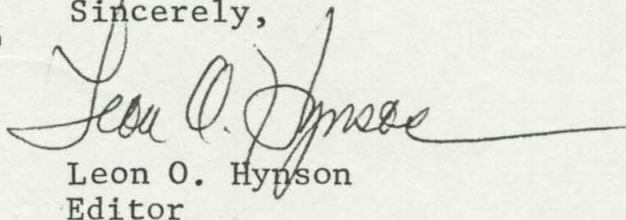 Sincerely,
Leon O. Hynson
Leon O. Hynson
Editor